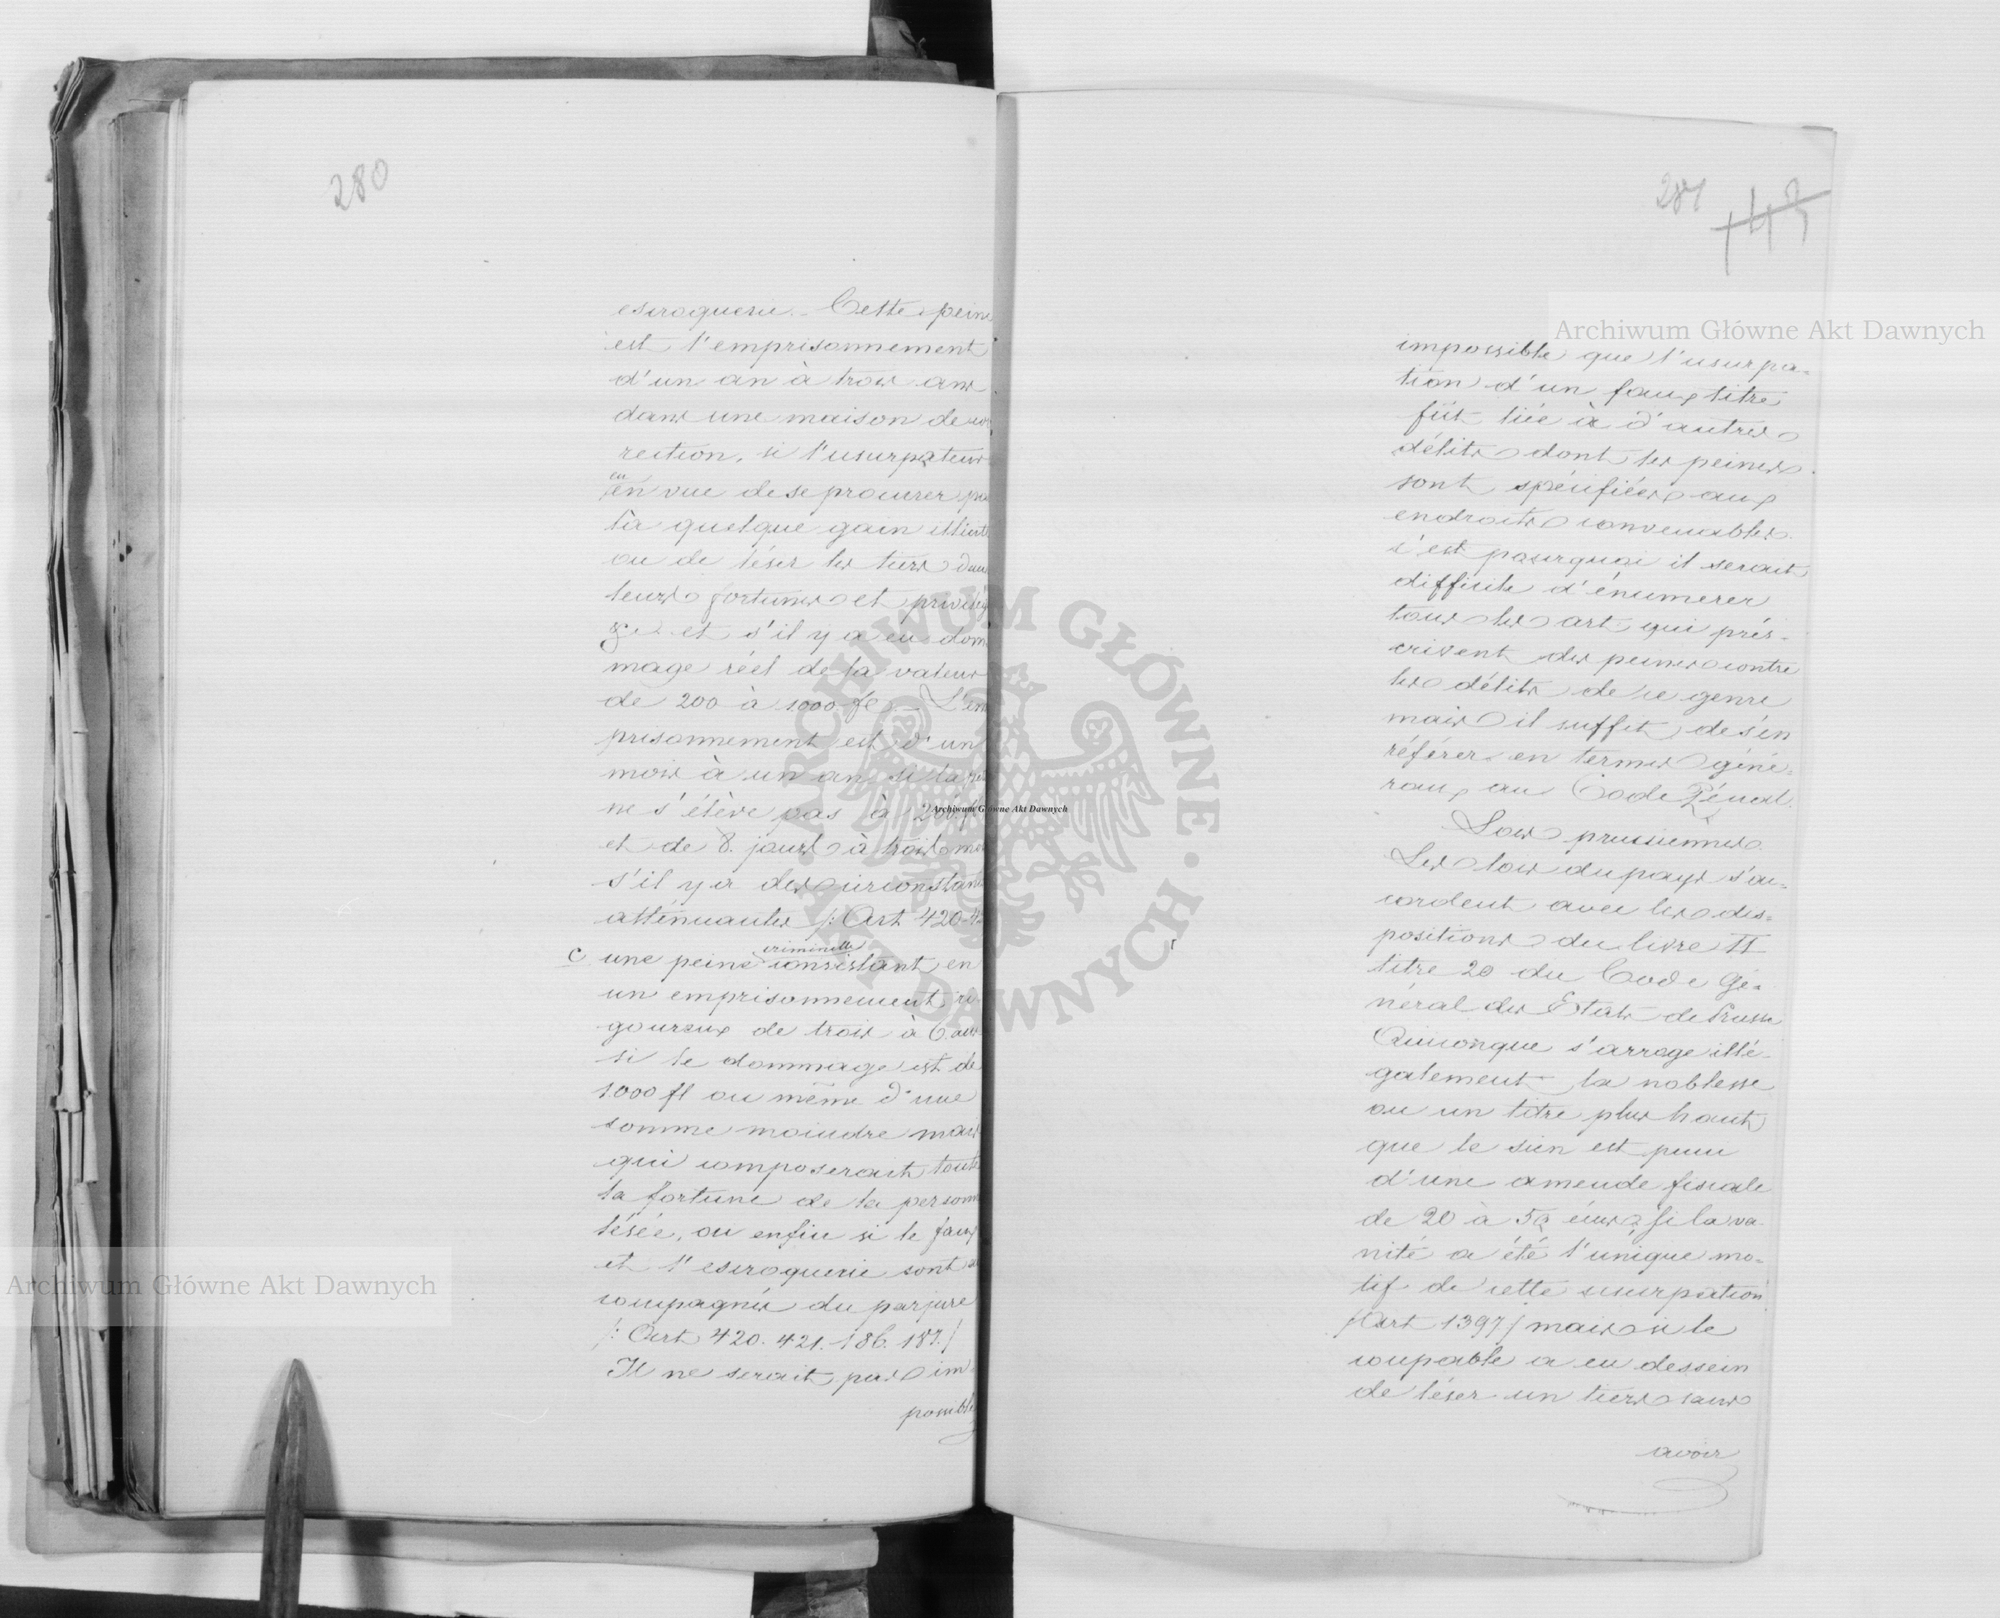 280
escroquerie. - Cette peine
est l'emprisonnement
d'un an à trois ans
dans une maison de cor
rection, si l'usurpateur
en vue de se procurer par
là quelque gain illicite
ou de léser les tiers dans
leurs fortunes et
et s'il y a eu dom
mage réel de la valeur
de 200 à 1000 fl. - L'em
prisonnement est d'un
mois à un an, si la
ne s'élève pas à 200 fl
et de 8. jours à trois mois
s'il y a des circonstances
atténuantes /: Art 420.
criminelle
c une peine consistant en
un emprisonnement ri
goureux de trois à 6 ans
si le dommage est de
1000 fl ou même d'une
somme moindre mais
qui composerait toute
la fortune de la personne
lésée, ou enfin si le faux
et l'escroquerie sont ac
compagnés du parjure
/: Art 420. 421. 186. 187. /
Il ne serait pas im
possible
281
143
impossible que l'usurpa-
tion d'un faux titre
fût liée à d'autres
délits dont les peines
sont spécifiées aux
endroits convenables.
c'est pourquoi il serait
difficile d'énumerer
tous les art qui prés-
crivent des peines contre
les délits de ce genre
mais il suffit de s'en
référer en termes géné-
raux au Code Pénal.
Lois prussiennes.
Les lois du pays s'ac-
cordent avec les dis-
positions du livre II
titre 20 du Code Gé-
néral des Etats de Prusse
Quiconque s'arroge illé-
galement la noblesse
ou un titre plus haut
que le sien est puni
d'une amende fiscale
de 20 à 50 écus, si la va-
nité a été l'unique mo-
tif de cette usurpation
/Art 1397/ mais si le
coupable a eu dessein
de léser un tiers sans
avoir
Archiwum Główne Akt Dawnych
Archiwum Główne Akt Dawnych
Archiwum Główne Akt Dawnych
ARCHIWUM GŁÓWNE AKT DAWNYCH